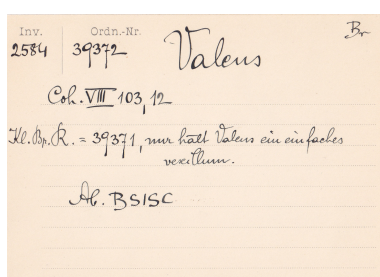 Inv. Ordn.-Nr. Br
2584 39372 Valens
Coh. VIII 103, 12
Kl. Bp. R. = 39371, nur hält Valens ein einfaches
vexillum.
Ab. BSISC